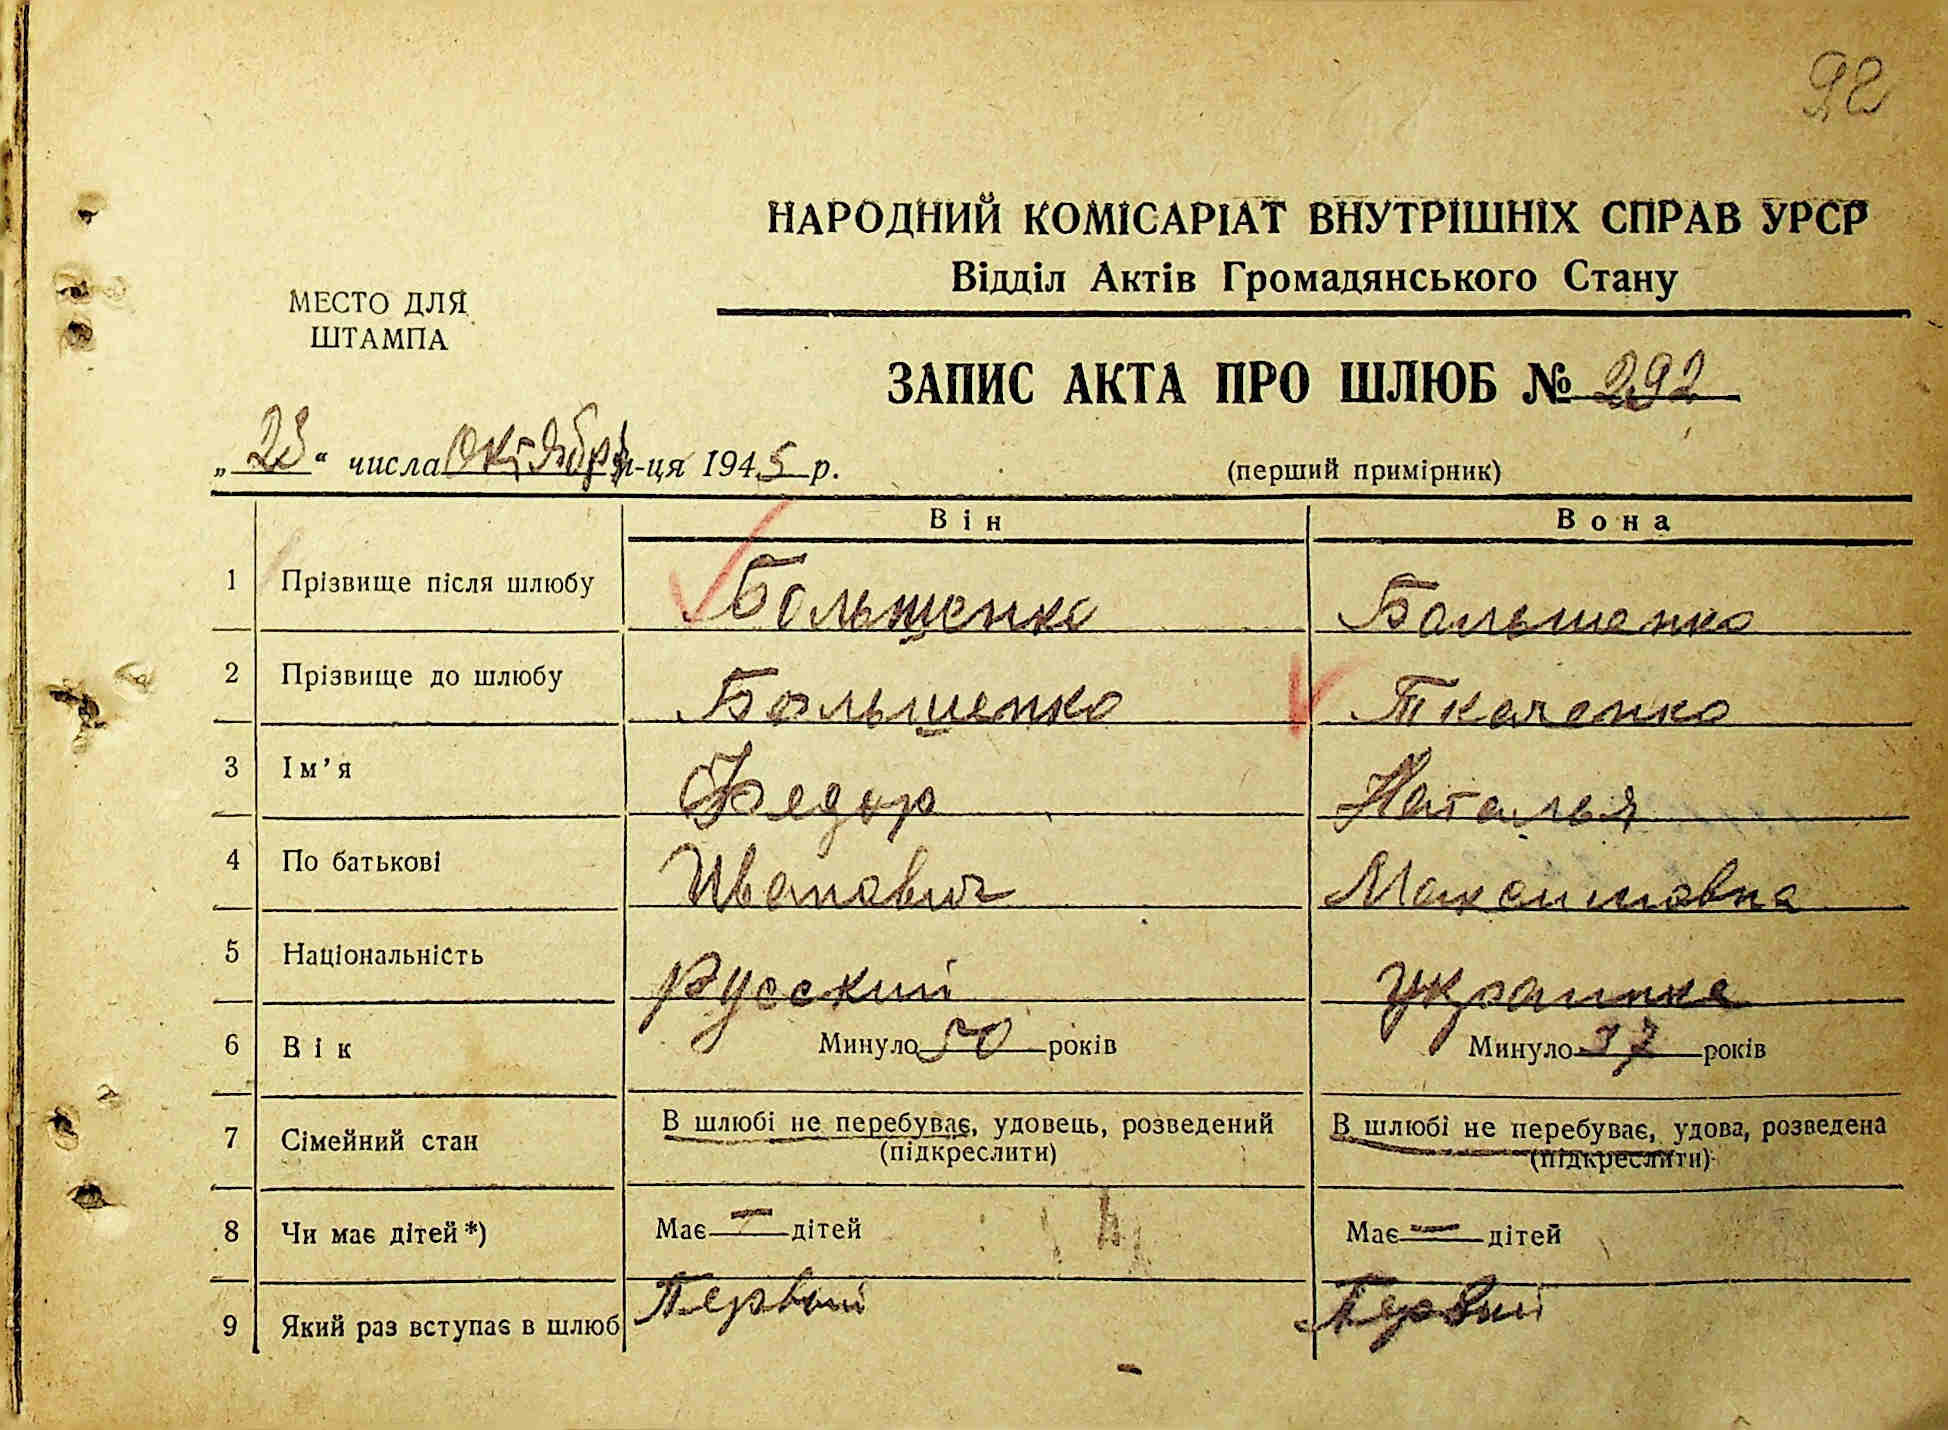 92
НАРОДНИЙ КОМІСАРІАТ ВНУТРІШНІХ СПРАВ УРСР
Відділ Актів Громадянського Стану
МЕСТО ДЛЯ
ШТАМПА
ЗАПИС АКТА ПРО ШЛЮБ № 292
„23“ числа Октября м-ця 1945 р.
(перший примірник)
Він Вона
1 Прізвище після шлюбу Большенко Большенко
2 Прізвище до шлюбу Большенко Ткаченко
3 Ім'я Федор Наталья
4 По батькові Иванович Максимовна
5 Національність Русский Украинка
6 Вік Минуло 50 років Минуло 37 років
7 Сімейний стан В шлюбі не перебуває, удовець, розведений (підкреслити) В шлюбі не перебуває, удова, розведена (підкреслити)
8 Чи має дітей*) Має — дітей Має — дітей
9 Який раз вступає в шлюб Первый Первый